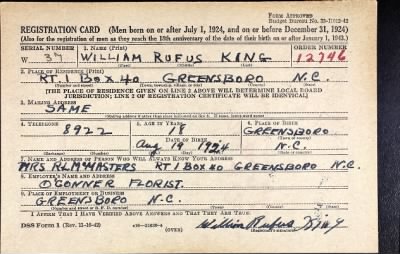 FORM APPROVED
Budget Bureau No. 33-R012-42
REGISTRATION CARD (Men born on or after July 1, 1924, and on or before December 31, 1924)
(Also for the registration of men as they reach the 18th anniversary of the date of their birth on or after January 1, 1943.)
SERIAL NUMBER 1. NAME (Print) ORDER NUMBER
W 37 WILLIAM RUFUS KING 12746
2. PLACE OF RESIDENCE (Print)
RT. 1 BOX 40 GREENSBORO N.C.
[THE PLACE OF RESIDENCE GIVEN ON LINE 2 ABOVE WILL DETERMINE LOCAL BOARD
JURISDICTION; LINE 2 OF REGISTRATION CERTIFICATE WILL BE IDENTICAL]
3. MAILING ADDRESS
SAME
4. TELEPHONE 5. AGE IN YEARS 6. PLACE OF BIRTH
8922 18 GREENSBORO
DATE OF BIRTH
Aug 19 1924 N.C.
7. NAME AND ADDRESS OF PERSON WHO WILL ALWAYS KNOW YOUR ADDRESS
MRS R.L. MCMASTERS RT 1 BOX 40 GREENSBORO N.C.
8. EMPLOYER'S NAME AND ADDRESS
O'CONNER FLORIST.
9. PLACE OF EMPLOYMENT OR BUSINESS
GREENSBORO N.C.
I AFFIRM THAT I HAVE VERIFIED ABOVE ANSWERS AND THAT THEY ARE TRUE.
DSS Form 1 (Rev. 11-16-42) (OVER) William Rufus King